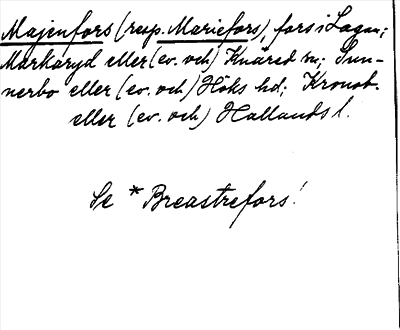 Majenfors (resp. Mariefors), fors i Lagan;
Markaryd eller (ev. och) Knäred sn; Sun-
nerbo eller (ev. och) Höks hd; Kronob.
eller (ev. och) Hallands l.
Se * Breastrefors!